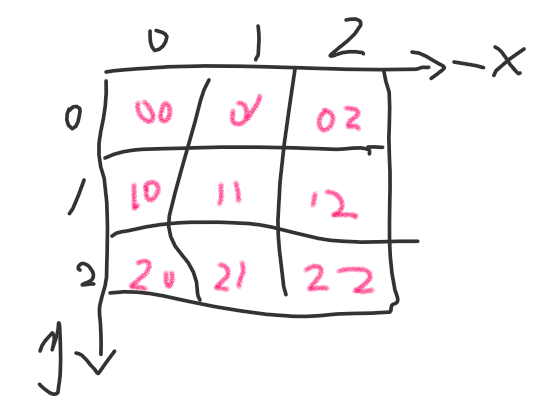 0 1 2
-x
0 00 01 02
1 10 11 12
2 20 21 22
y